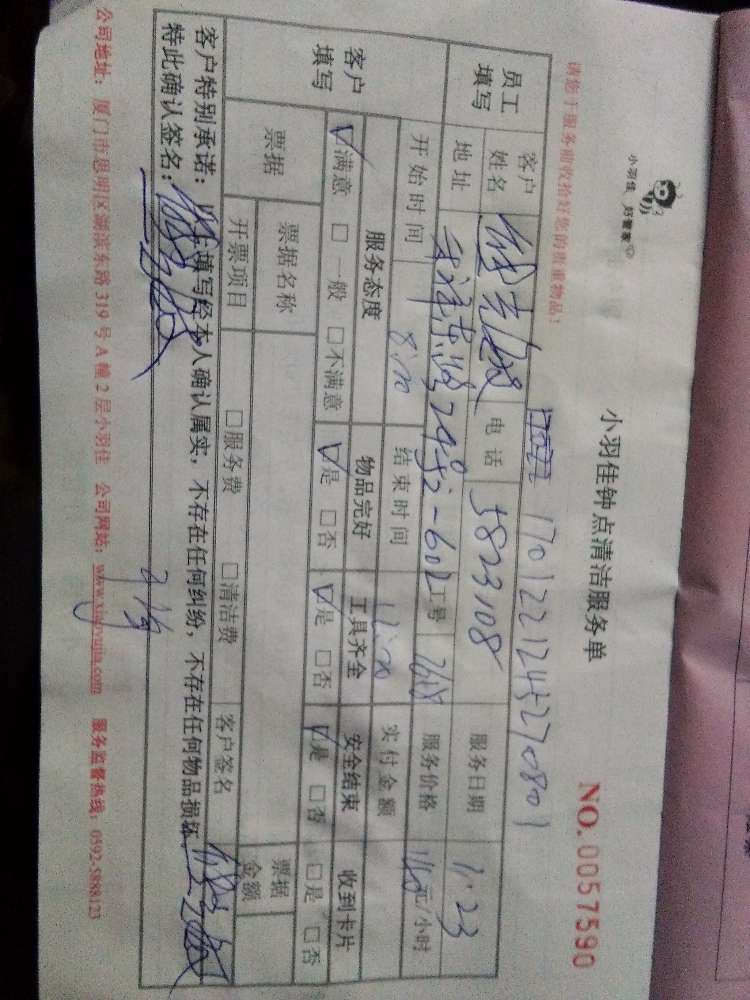 小羽佳 好管家
小羽佳钟点清洁服务单
NO. 0057590
请您于服务前收拾好您的贵重物品!
1701221245270801
员工填写 客户姓名 电话 5823108 服务日期 1.23
地址 602 工号 服务价格 元/小时
开始时间 8:00 结束时间 12:00 实付金额
客户填写 服务态度 物品完好 工具齐全 安全结束 收到卡片
☑满意 □一般 □不满意 ☑是 □否 ☑是 □否 ☑是 □否 □是 □否
票据 票据名称 票据金额
开票项目 □服务费 □清洁费 客户签名
客户特别承诺:以上填写经本人确认属实,不存在任何纠纷,不存在任何物品损坏,
特此确认签名:
公司地址:厦门市思明区湖滨东路319号A幢2层小羽佳 公司网站:www.xiaoyujia.com 服务监督热线:0592-5888123